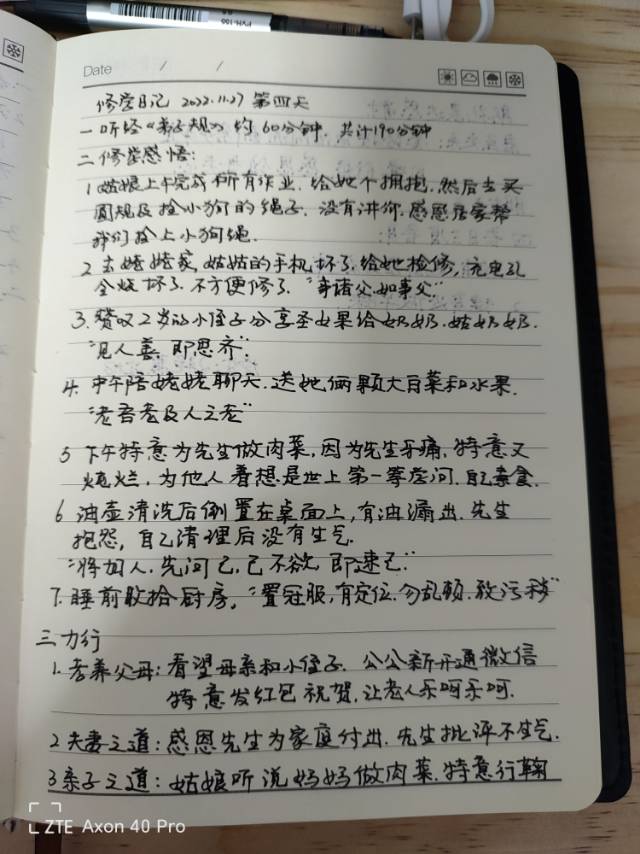 PVN-166
Date / /
修学日记 2022.11.27 第四天
一 听经《弟子规》约60分钟. 共计190分钟
二 修学感悟:
1 姑娘上午完成所有作业. 给她个拥抱. 然后去买
圆规及拴小狗的绳子. 没有讲价. 感恩店家帮
我们拴上小狗绳.
2 去姥姥家, 姑姑的手机坏了. 给她检修, 充电孔
全烧坏了. 不方便修了. "事诸父 如事父"
3. 赞叹2岁的小侄子分享圣女果给奶奶. 姑奶奶.
"见人善. 即思齐".
4. 中午陪姥姥聊天. 送她俩颗大白菜和水果.
"老吾老及人之老"
5 下午特意为先生做肉菜, 因为先生牙痛, 特意又
炖烂, 为他人着想是世上第一等学问. 自己素食.
6 油壶清洗后倒置在桌面上, 有油漏出. 先生
抱怨, 自己清理后没有生气.
"将加人. 先问己. 己不欲 即速己"
7. 睡前收拾厨房, "置冠服, 有定位. 勿乱顿. 致污秽"
三 力行
1. 孝养父母: 看望母亲和小侄子. 公公新开通微信
特意发红包祝贺. 让老人乐呵乐呵.
2 夫妻之道: 感恩先生为家庭付出. 先生批评不生气.
3 亲子之道: 姑娘听说妈妈做肉菜. 特意行鞠
ZTE Axon 40 Pro